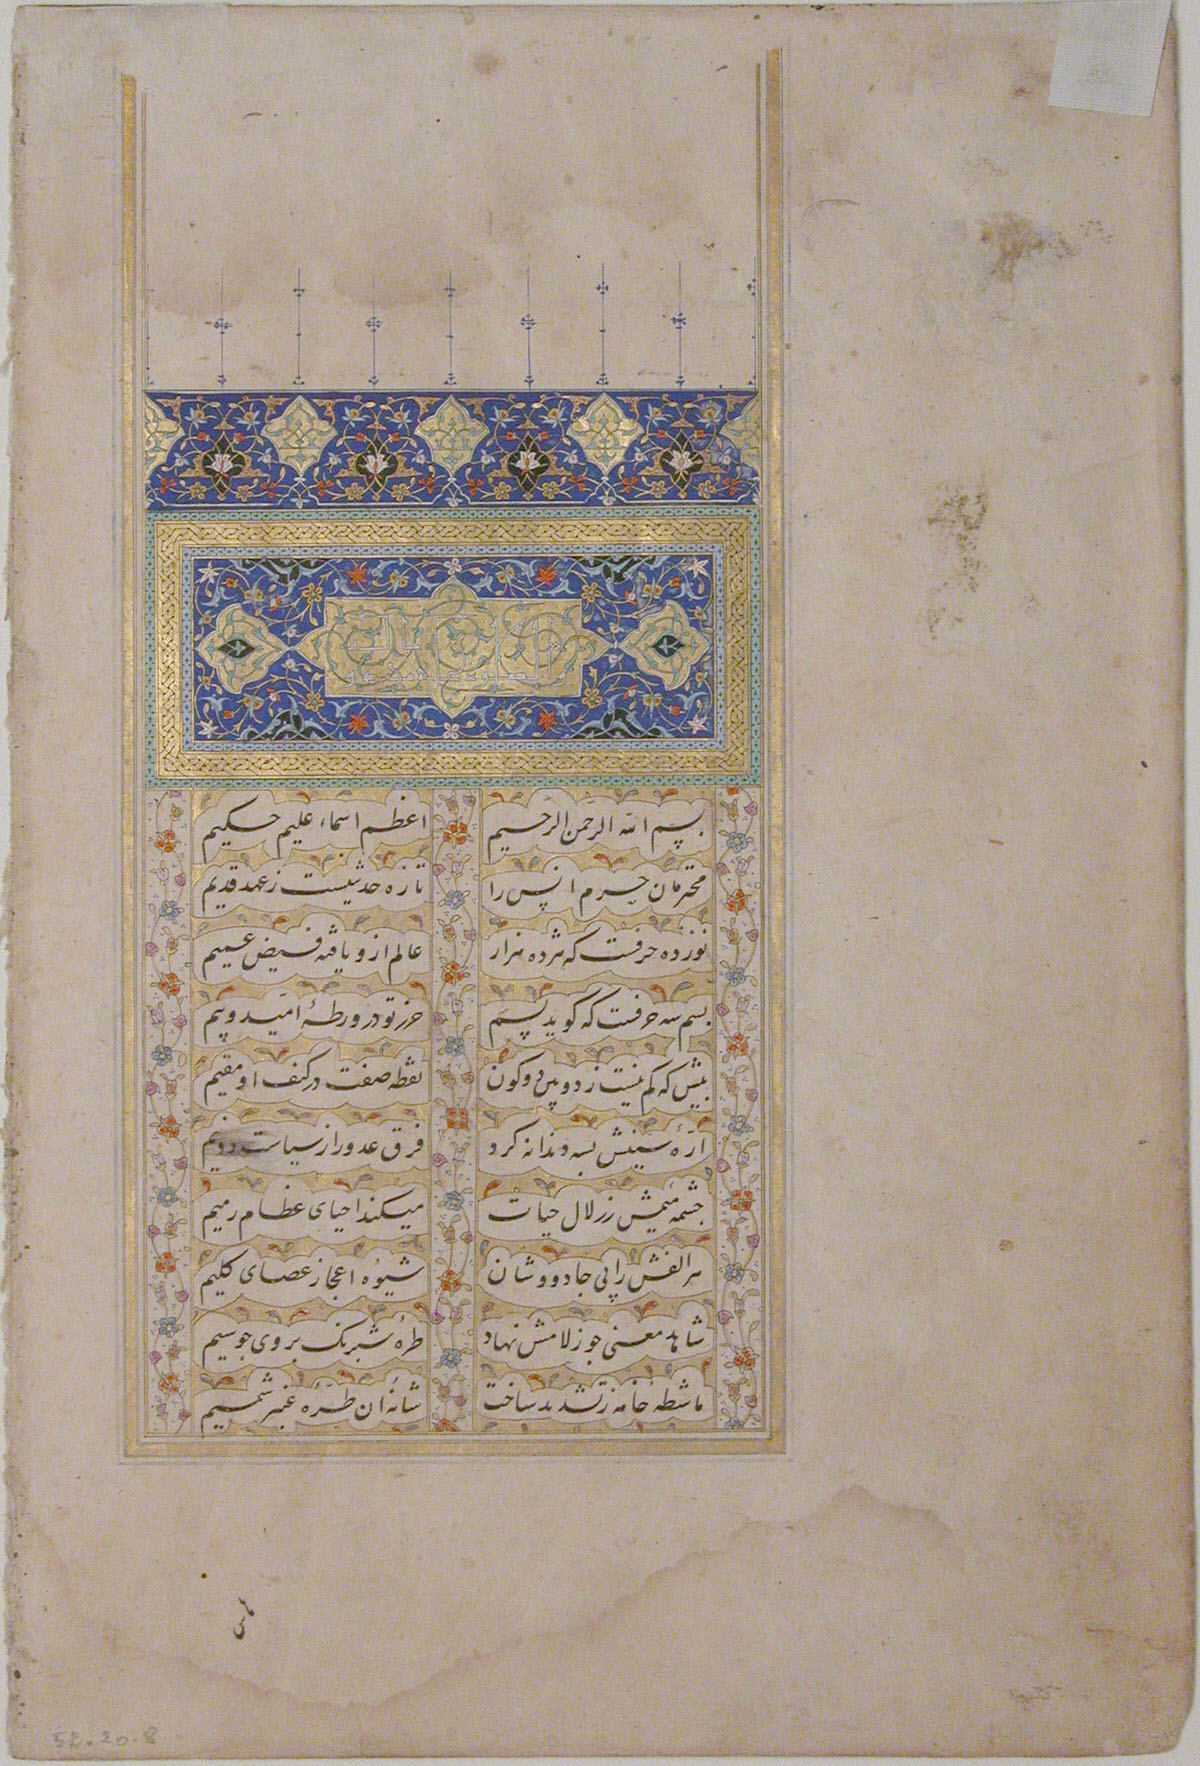 بسم الله الرحمن الرحیم اعظم اسماء علیم حکیم
محترمان حرم انس را تازه حدیثیست ز عهد قدیم
نوزده حرفست که هژده هزار عالم ازو یافته فیض عمیم
بسم سه حرفست که گوید بسم حرز تو در ورطهٔ امید و بیم
بیش که کم نیست ز دو پیش دو کون نقطه صفت در کنف او مقیم
ارهٔ سینش بسه دندانه کرد فرق عدو را ز سیاست دو نیم
چشمه میمش ز زلال حیات میکند احیای عظام رمیم
سر الفش را پی جادووشان شیوه اعجاز عصای کلیم
شاهد معنی چو ز لامش نهاد طره شبرنگ بروی چو سیم
ماشطه خامه ز تشدید ساخت شانه ان طره عنبر شمیم
52.20.8